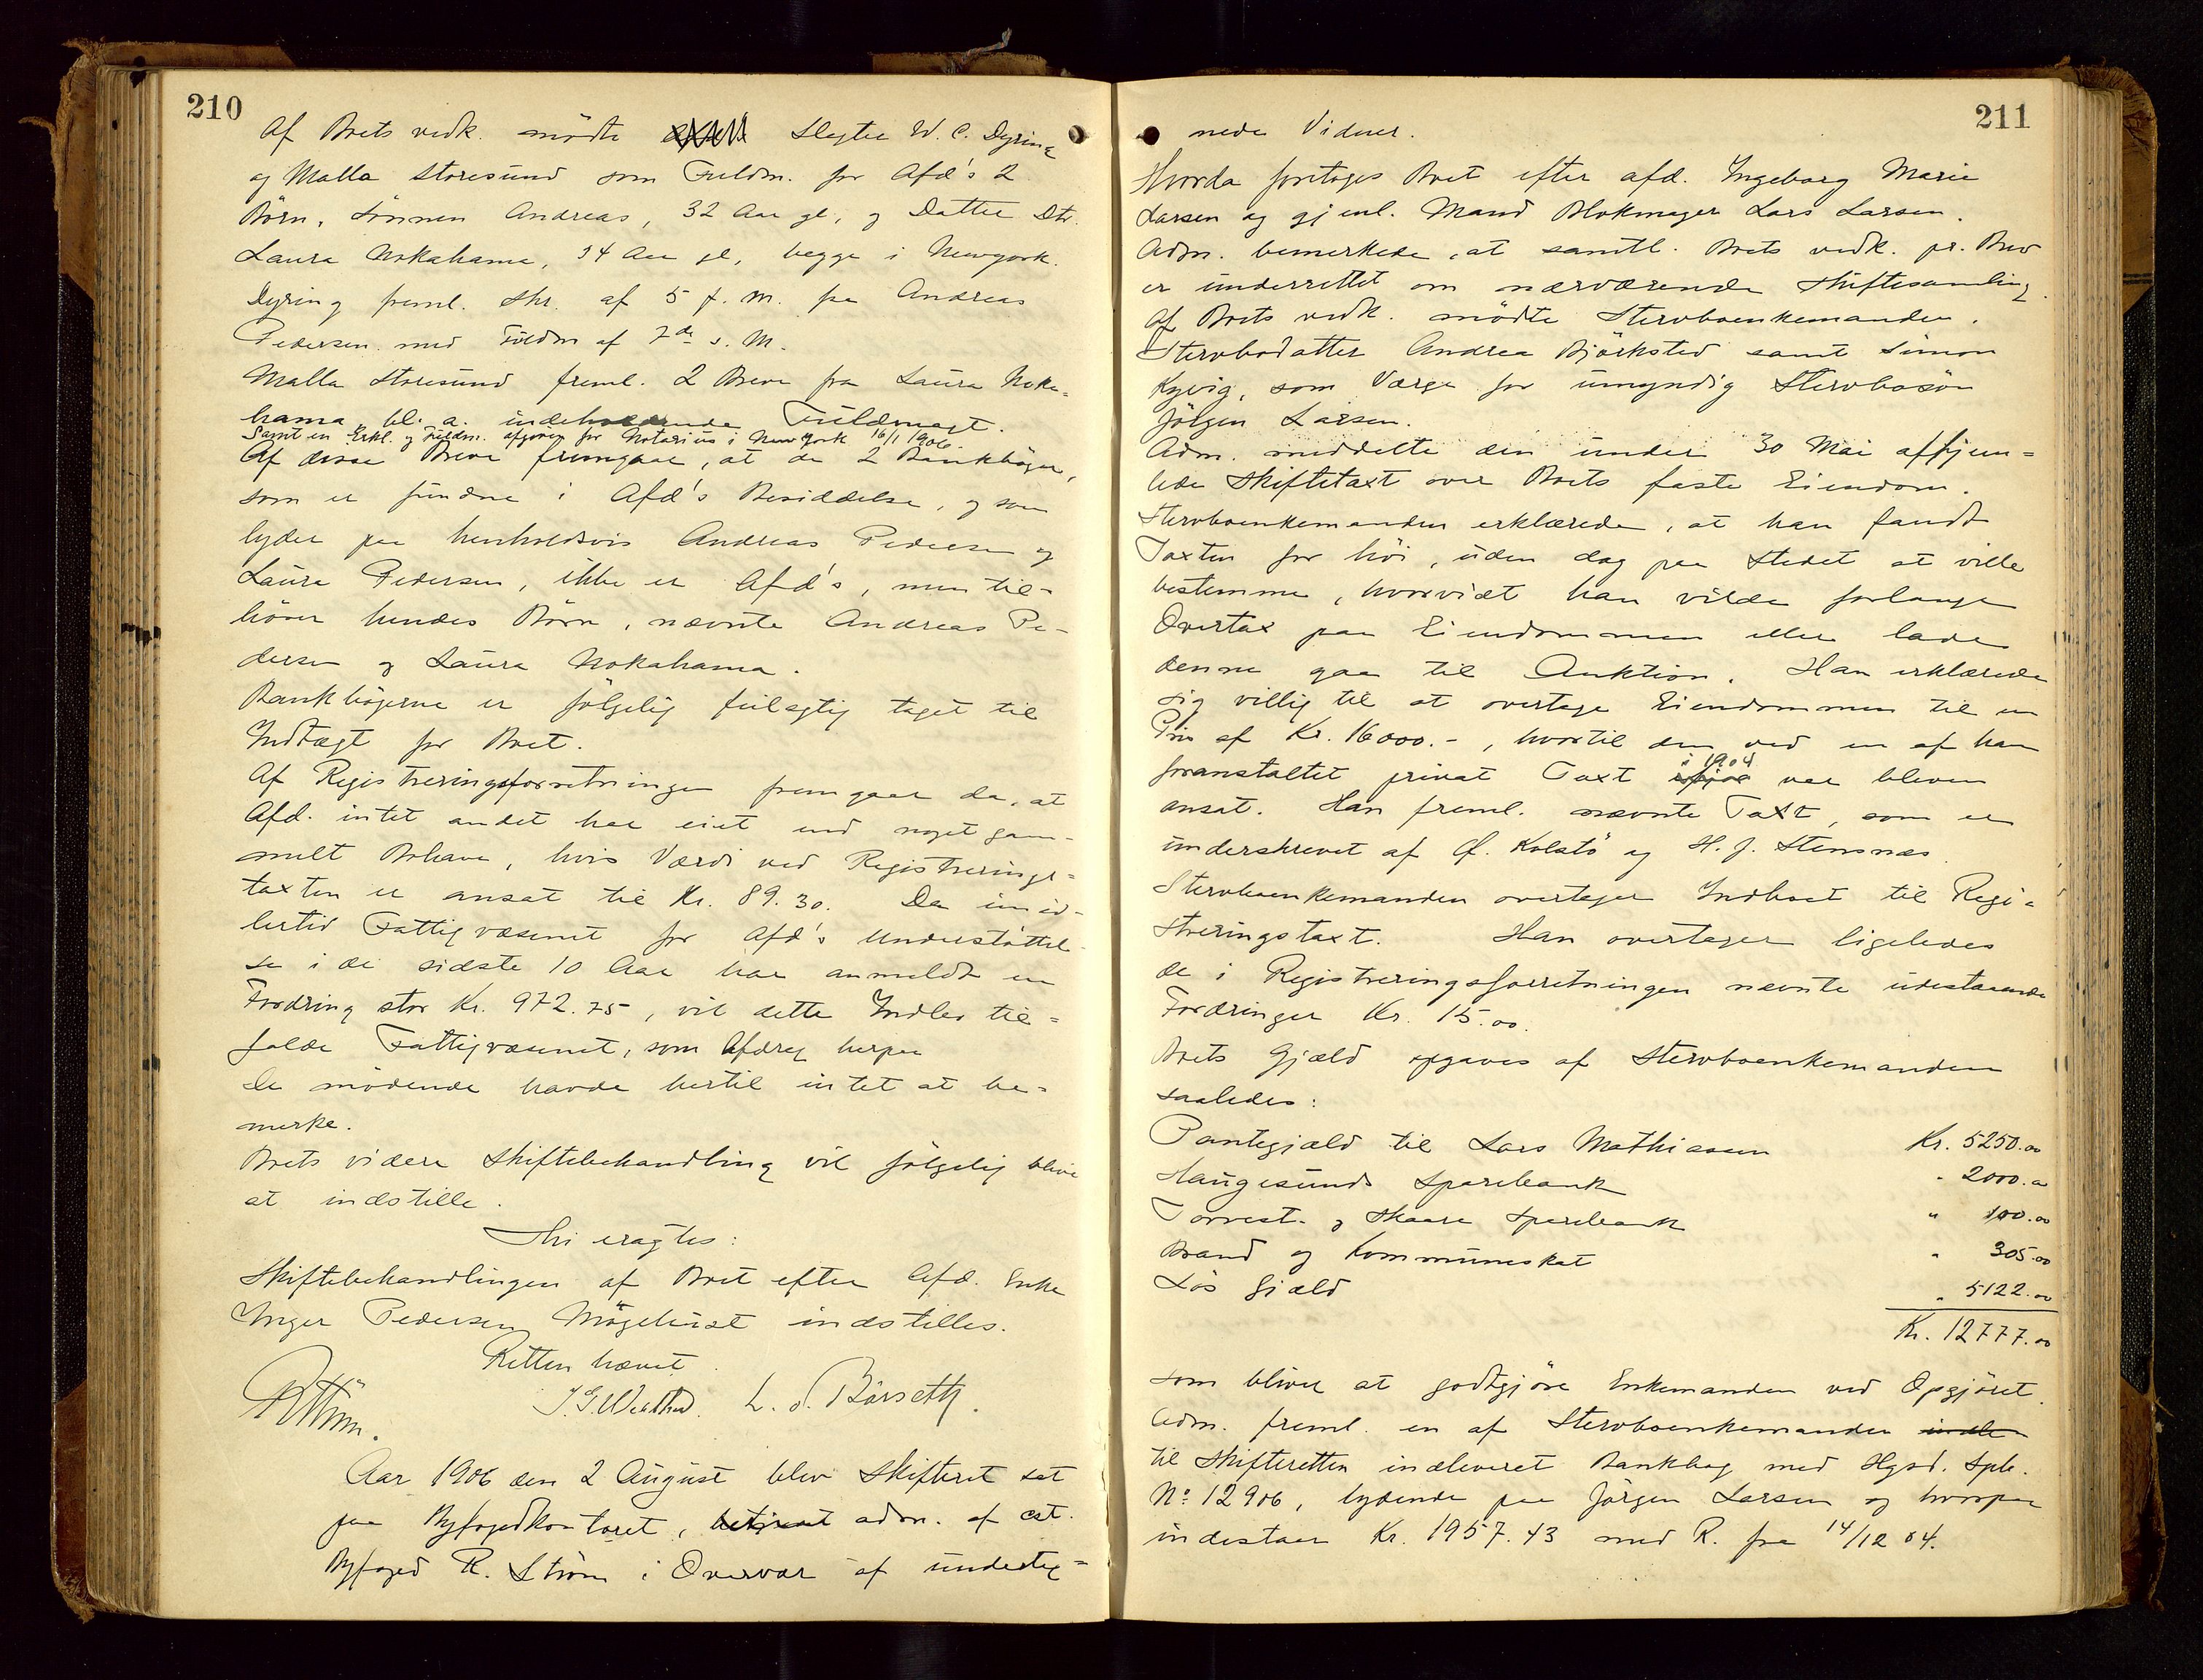 210
Af Boets vedk. mødte Slagter W. C. Dyring
og Malla Storesund som Fuldm. for Afd's 2
Børn, Sønnen Andreas, 32 Aar gl, og Datter Dtr.
Laura Nokahama, 34 Aar gl, begge i Newyork.
Dyring freml. Skr. af 5 f. M. fra Andreas
Pedersen med Fuldm af 7de s. M.
Malla Storesund freml. 2 Breve fra Laura Noka-
hama bl. a. indeholdende Fuldmagt.
Samt en Erkl. og Fuldm. afgiven for Notarius i New York 16/1 1906.
Af disse Breve fremgaar, at de 2 Bankbøger,
som er fundne i Afd's Besiddelse, og som
lyder paa henholdsvis Andreas Pedersen og
Laura Pedersen, ikke er Afd's, men til-
hører hendes Børn, nævnte Andreas Pe-
dersen og Laura Nokahama.
Bankbøgerne er følgelig feilagtig taget til
Indtægt for Boet.
Af Registreringsforretningen fremgaar da, at
Afd. intet andet har eiet end noget gam-
melt Bohave, hvis Værdi ved Registrerings-
taxten er ansat til Kr. 89.30. Da imid-
lertid Fattigvæsenet for Afd's Understøttel-
se i de sidste 10 Aar har anmeldt en
Fordring stor Kr. 972.75, vil dette Indbo til-
falde Fattigvæsenet, som Afdrag herpaa
De mødende havde hertil intet at be-
merke.
Boets videre Skiftebehandling vil følgelig blive
at indstille.
Thi eragtes:
Skiftebehandlingen af Boet efter Afd. Enke
Inger Pedersen Møgehust indstilles.
Retten hævet.
RStrøm. L. O. Børseth.
Aar 1906 den 2 August blev Skifteret sat
paa Byfogedkontoret, betjent adm. af cst.
Byfoged R. Strøm i Overvær af underteg-
211
nede Vidner.
Hvorda foretoges Boet efter afd. Ingeborg Marie
Larsen og gjenl. Mand Blokmager Lars Larsen.
Adm. bemerkede, at samtl. Boets vedk. pr. Brev
er underrettet om nærværende Skiftesamling.
Af Boets vedk. mødte Stervboenkemanden.
Stervbodatter Andrea Bjørksted samt Simon
Kyvig, som Værge for umyndig Stervbosøn
Jørgen Larsen.
Adm. meddelte den under 30 Mai afhjem-
lede Skiftetaxt over Boets faste Eiendom.
Stervboenkemanden erklærede, at han fandt
Taxten for høi, uden dog paa Stedet at ville
bestemme, hvorvidt han vilde forlange
Overtax paa Eiendommen eller lade
denne gaa til Auktion. Han erklærede
sig villig til at overtage Eiendommen til en
Pris af Kr. 16000.-, hvortil den ved en af ham
foranstaltet privat Taxt i 1904 var bleven
ansat. Han freml. nævnte Taxt, som er
underskrevet af O. Kolstø og H. J. Stensnæs.
Stervboenkemanden overtager Indboet til Regi-
streringstaxt. Han overtager ligeledes
de i Registreringsforretningen nævnte udestaaende
Fordringer Kr. 15.00.
Boets Gjæld opgaves af Stervboenkemanden
saaledes:
Pantegjæld til Lars Mathiassen Kr. 5250.00
Haugesunds Sparebank " 2000.00
Torvest. og Skaare Sparebank " 100.00
Brand og Kommuneskat " 305.00
Løs Gjæld " 5122.00
Kr. 12777.00
som bliver at godtgjøre Enkemanden ved Opgjøret.
Adm. freml. en af Stervboenkemanden inde
til Skifteretten indleveret Bankbog med Hgsd. Spb.
No 12906, lydende paa Jørgen Larsen og hvorpaa
indestaar Kr. 1957.43 med R. fra 14/12 04.